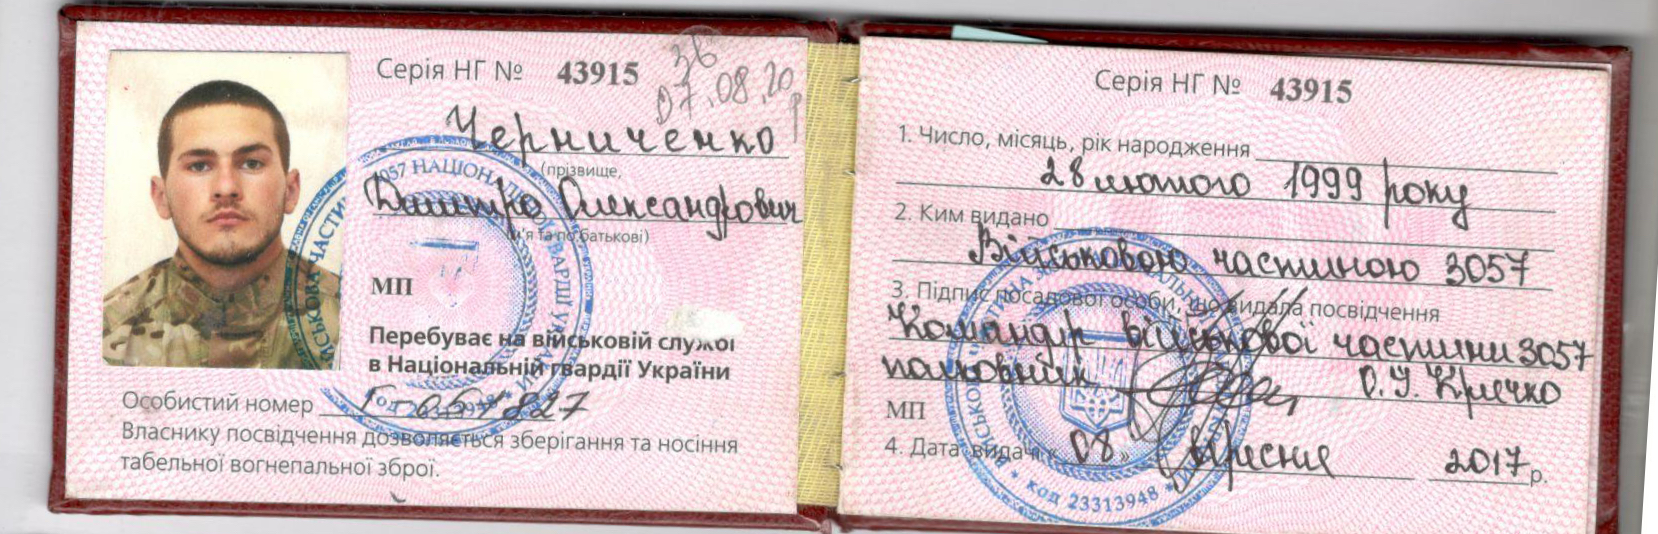 Серія НГ № 43915
зв
07.08.20
Черниченко
(прізвище,
Дмитро Олександрович
ім'я та по батькові)
МП
Перебуває на військовій службі
в Національній гвардії України
Особистий номер Г-054827
Власнику посвідчення дозволяється зберігання та носіння
табельної вогнепальної зброї.
Серія НГ № 43915
1. Число, місяць, рік народження
28 лютого 1999 року
2. Ким видано
Військовою частиною 3057
3. Підпис посадової особи, що видала посвідчення
Командір військової частини 3057
полковник
МП
4. Дата видачі «08» вересня 2017 р.
код 23313948